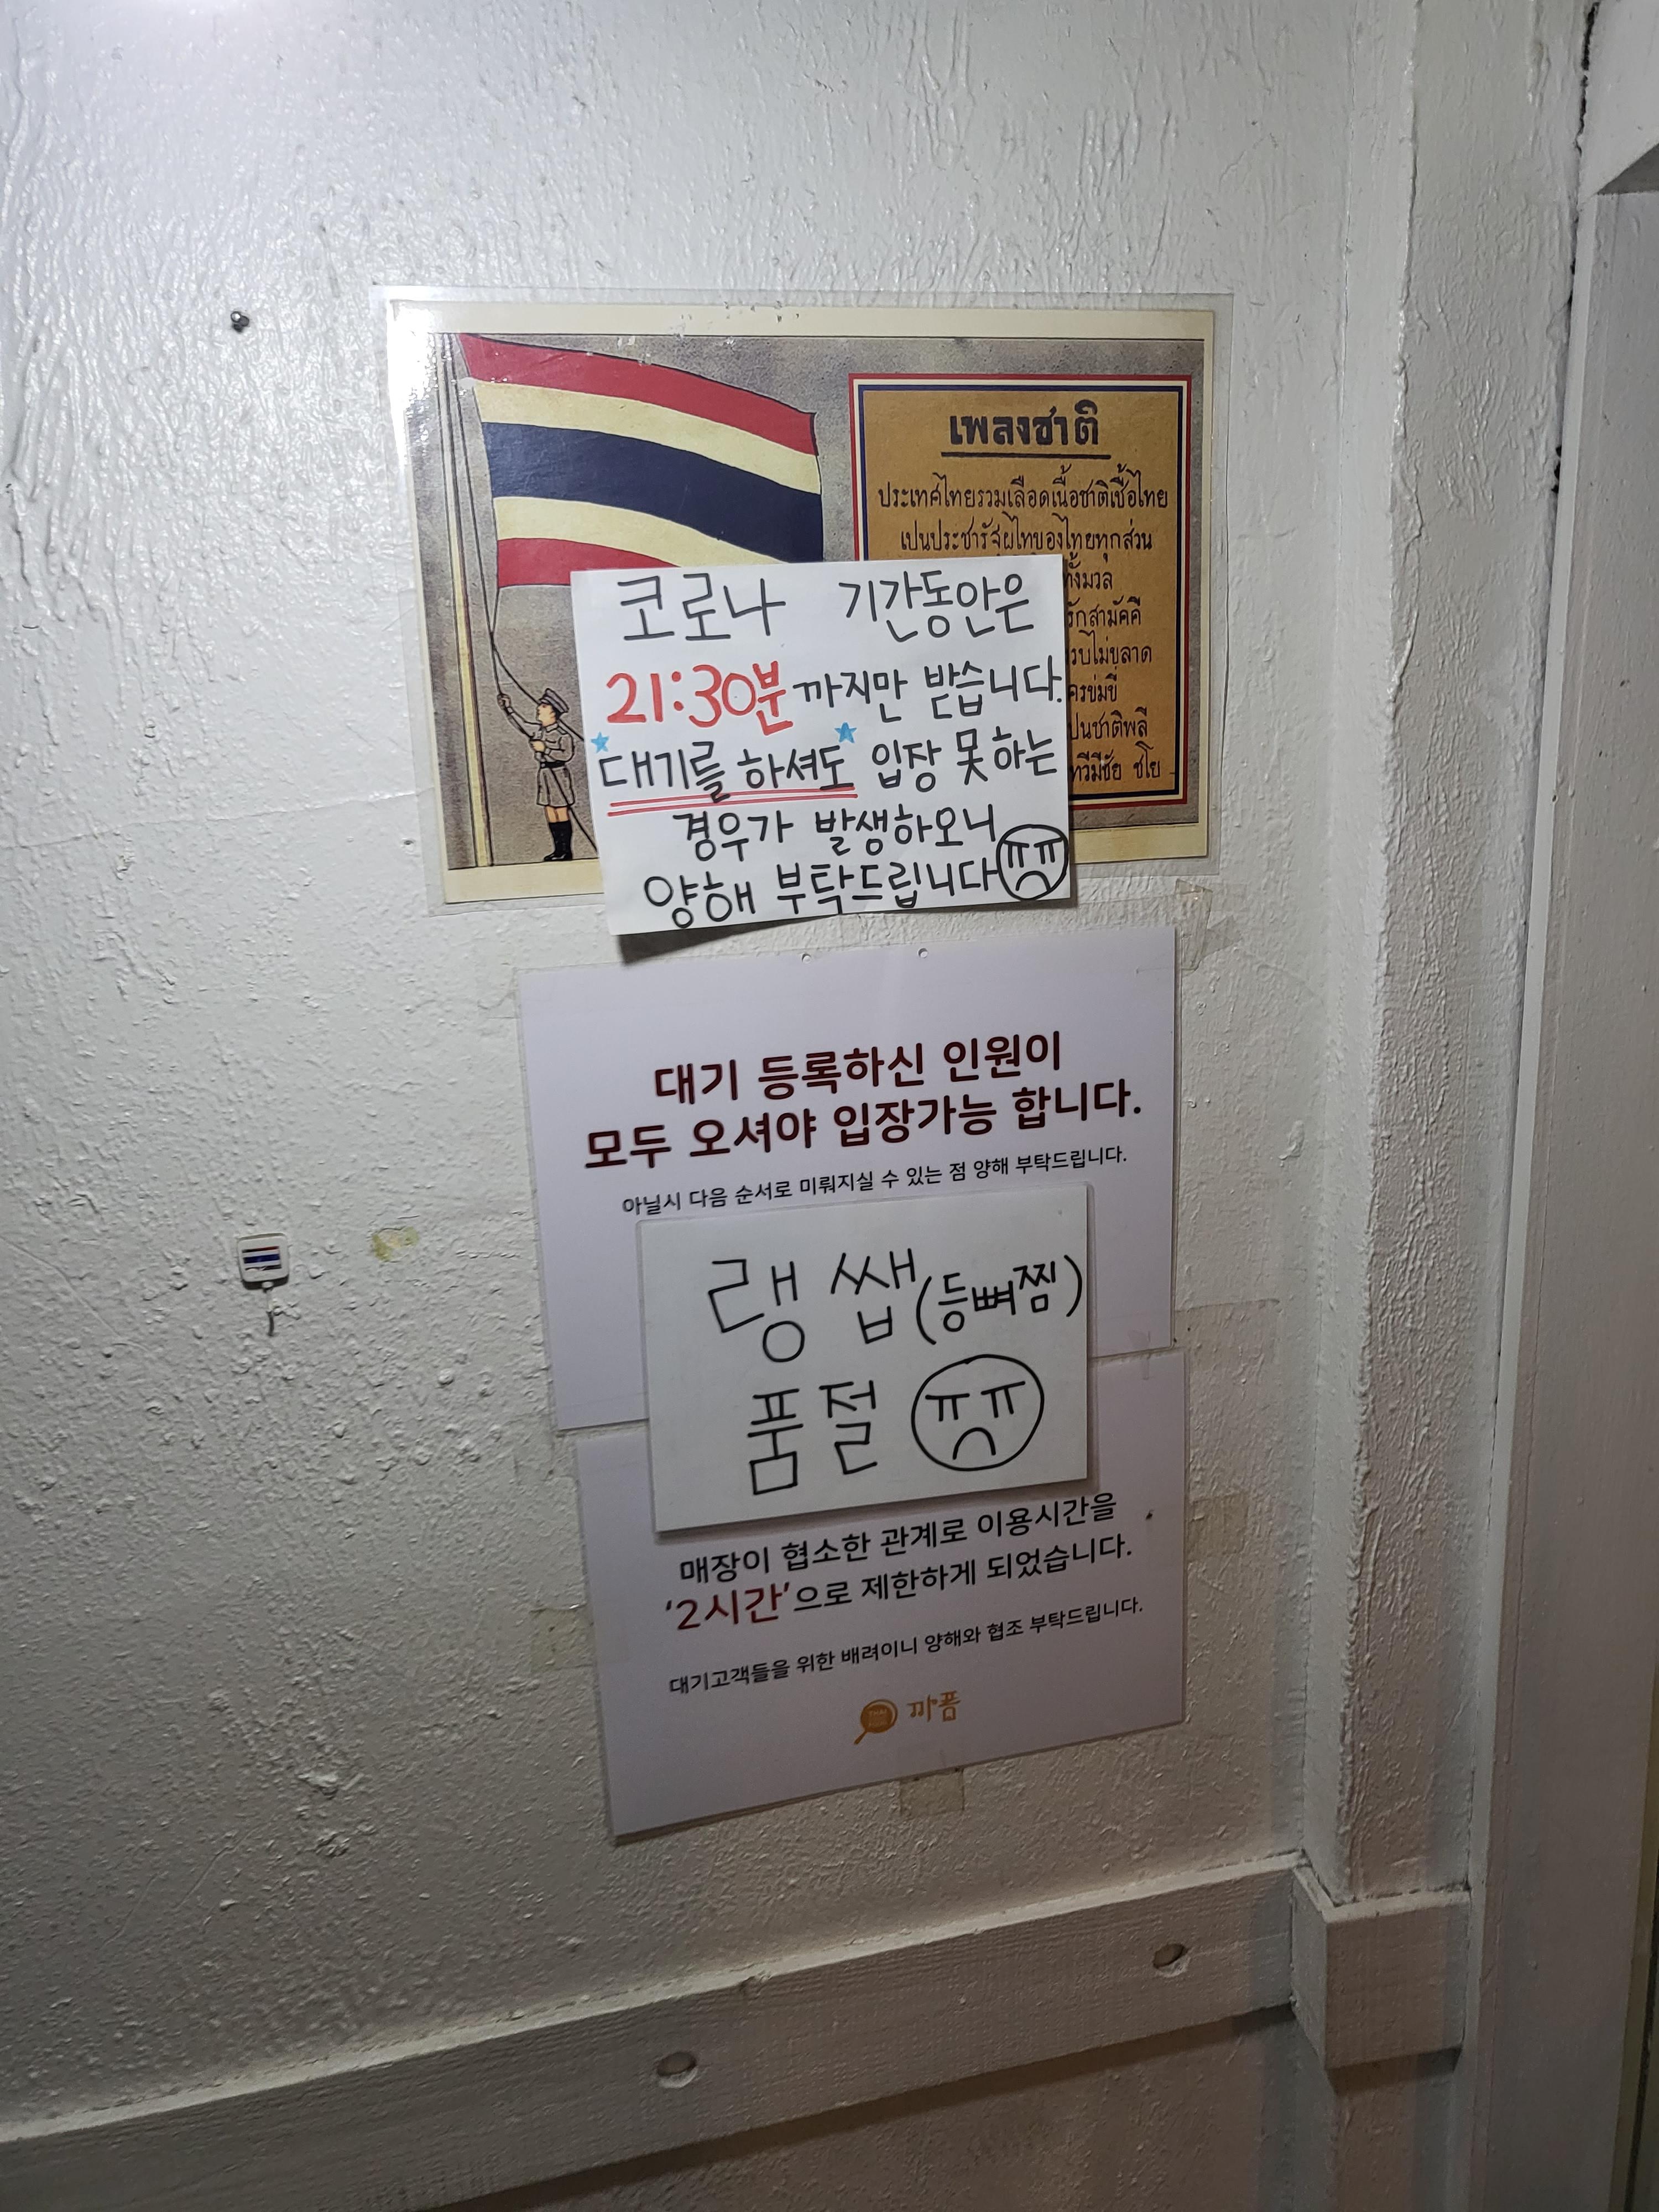 เพลงชาติ
ประเทศไทยรวมเลือดเนื้อชาติเชื้อไทย
เปนประชารัฐผไทของไทยทุกส่วน
ทั้งมวล
รักสามัคคี
รบไม่ขลาด
ครข่มขี่
ปนชาติพลี
ทวีมีชัย ชโย
코로나 기간동안은
21:30분까지만 받습니다.
대기를 하셔도 입장 못하는
경우가 발생하오니
양해 부탁드립니다 ㅠㅠ
대기 등록하신 인원이
모두 오셔야 입장가능 합니다.
아닐시 다음 순서로 미뤄지실 수 있는 점 양해 부탁드립니다.
랭쌥(등뼈찜)
품절 ㅠㅠ
매장이 협소한 관계로 이용시간을
‘2시간’으로 제한하게 되었습니다.
대기고객들을 위한 배려이니 양해와 협조 부탁드립니다.
THAI
까폼